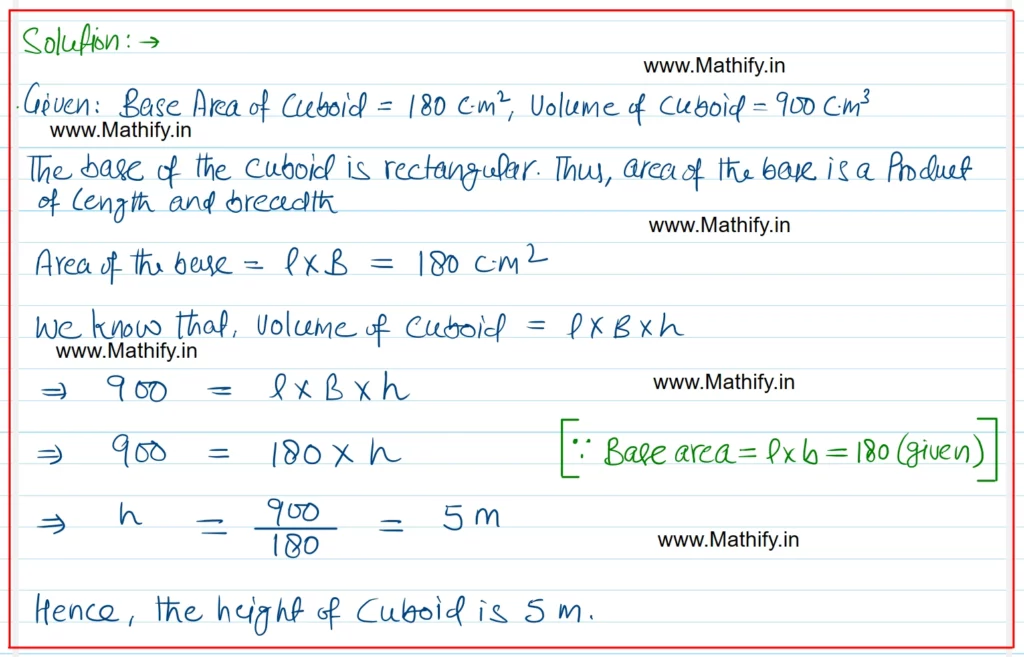 Solution: →
www.Mathify.in
Given: Base Area of Cuboid = 180 C.m², Volume of cuboid = 900 Cm³
www.Mathify.in
The base of the cuboid is rectangular. Thus, area of the base is a Product
of length and breadth
www.Mathify.in
Area of the base = l × B = 180 c.m²
We know that, volume of cuboid = l × B × h
www.Mathify.in
⇒ 900 = l × B × h
www.Mathify.in
⇒ 900 = 180 × h [∵ Base area = l × b = 180 (given)]
⇒ h = 900/180 = 5 m
www.Mathify.in
Hence, the height of Cuboid is 5 m.